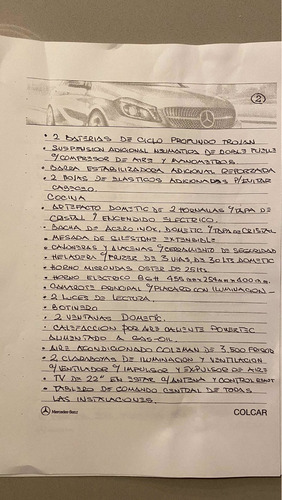 2
• 2 BATERIAS DE CICLO PROFUNDO TROJAN
• SUSPENSION ADICIONAL NEUMATICA DE DOBLE FUELLE
C/COMPRESOR DE AIRE Y MANOMETROS
• BARRA ESTABILIZADORA ADICIONAL REFORZADA
• 2 HOJAS DE ELASTICOS ADICIONADAS P/EVITAR
CABECEO.
COCINA
• ARTEFACTO DOMETIC DE 2 HORNALLAS C/TAPA DE
CRISTAL Y ENCENDIDO ELECTRICO.
• BACHA DE ACERO INOX. DOMETIC C/TAPA DE CRISTAL
• MESADA DE SILESTONE EXTENSIBLE
• CAJONERAS Y ALACENAS C/CERRAMIENTO DE SEGURIDAD
• HELADERA C/FREEZER DE 3 VIAS, DE 90 LTS DOMETIC
• HORNO MICROONDAS OSTER DE 25 LTS.
• HORNO ELECTRICO BGH 455 mm x 254 mm x 400 mm.
• CAMAROTE PRINCIPAL C/PLACARD CON ILUMINACION -
• 2 LUCES DE LECTURA.
• BOTINERO
• 2 VENTANAS DOMETIC.
• CALEFACCION POR AIRE CALIENTE
ALIMENTADO A GAS-OIL.
• AIRE ACONDICIONADO COLEMAN DE 3.500 FRIGORIAS
• 2 CLARABOYAS DE ILUMINACION Y VENTILACION
C/VENTILADOR C/IMPULSOR Y EXPULSOR DE AIRE
• TV DE 22" EN ESTAR C/ANTENA Y CONTROL REMOT
• TABLERO DE COMANDO CENTRAL DE TODAS
LAS INSTALACIONES.
Mercedes-Benz
COLCAR